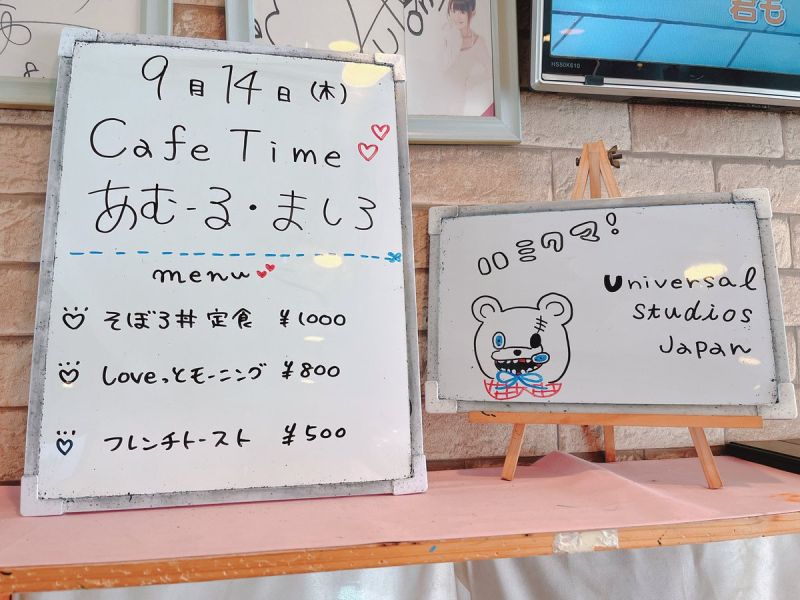 9月14日(木)
Cafe Time
あむーる・ましろ
menu
そぼろ丼定食 ¥1000
Loveっとモーニング ¥800
フレンチトースト ¥500
ハミクマ!
Universal
Studios
Japan
君も
HS50K610